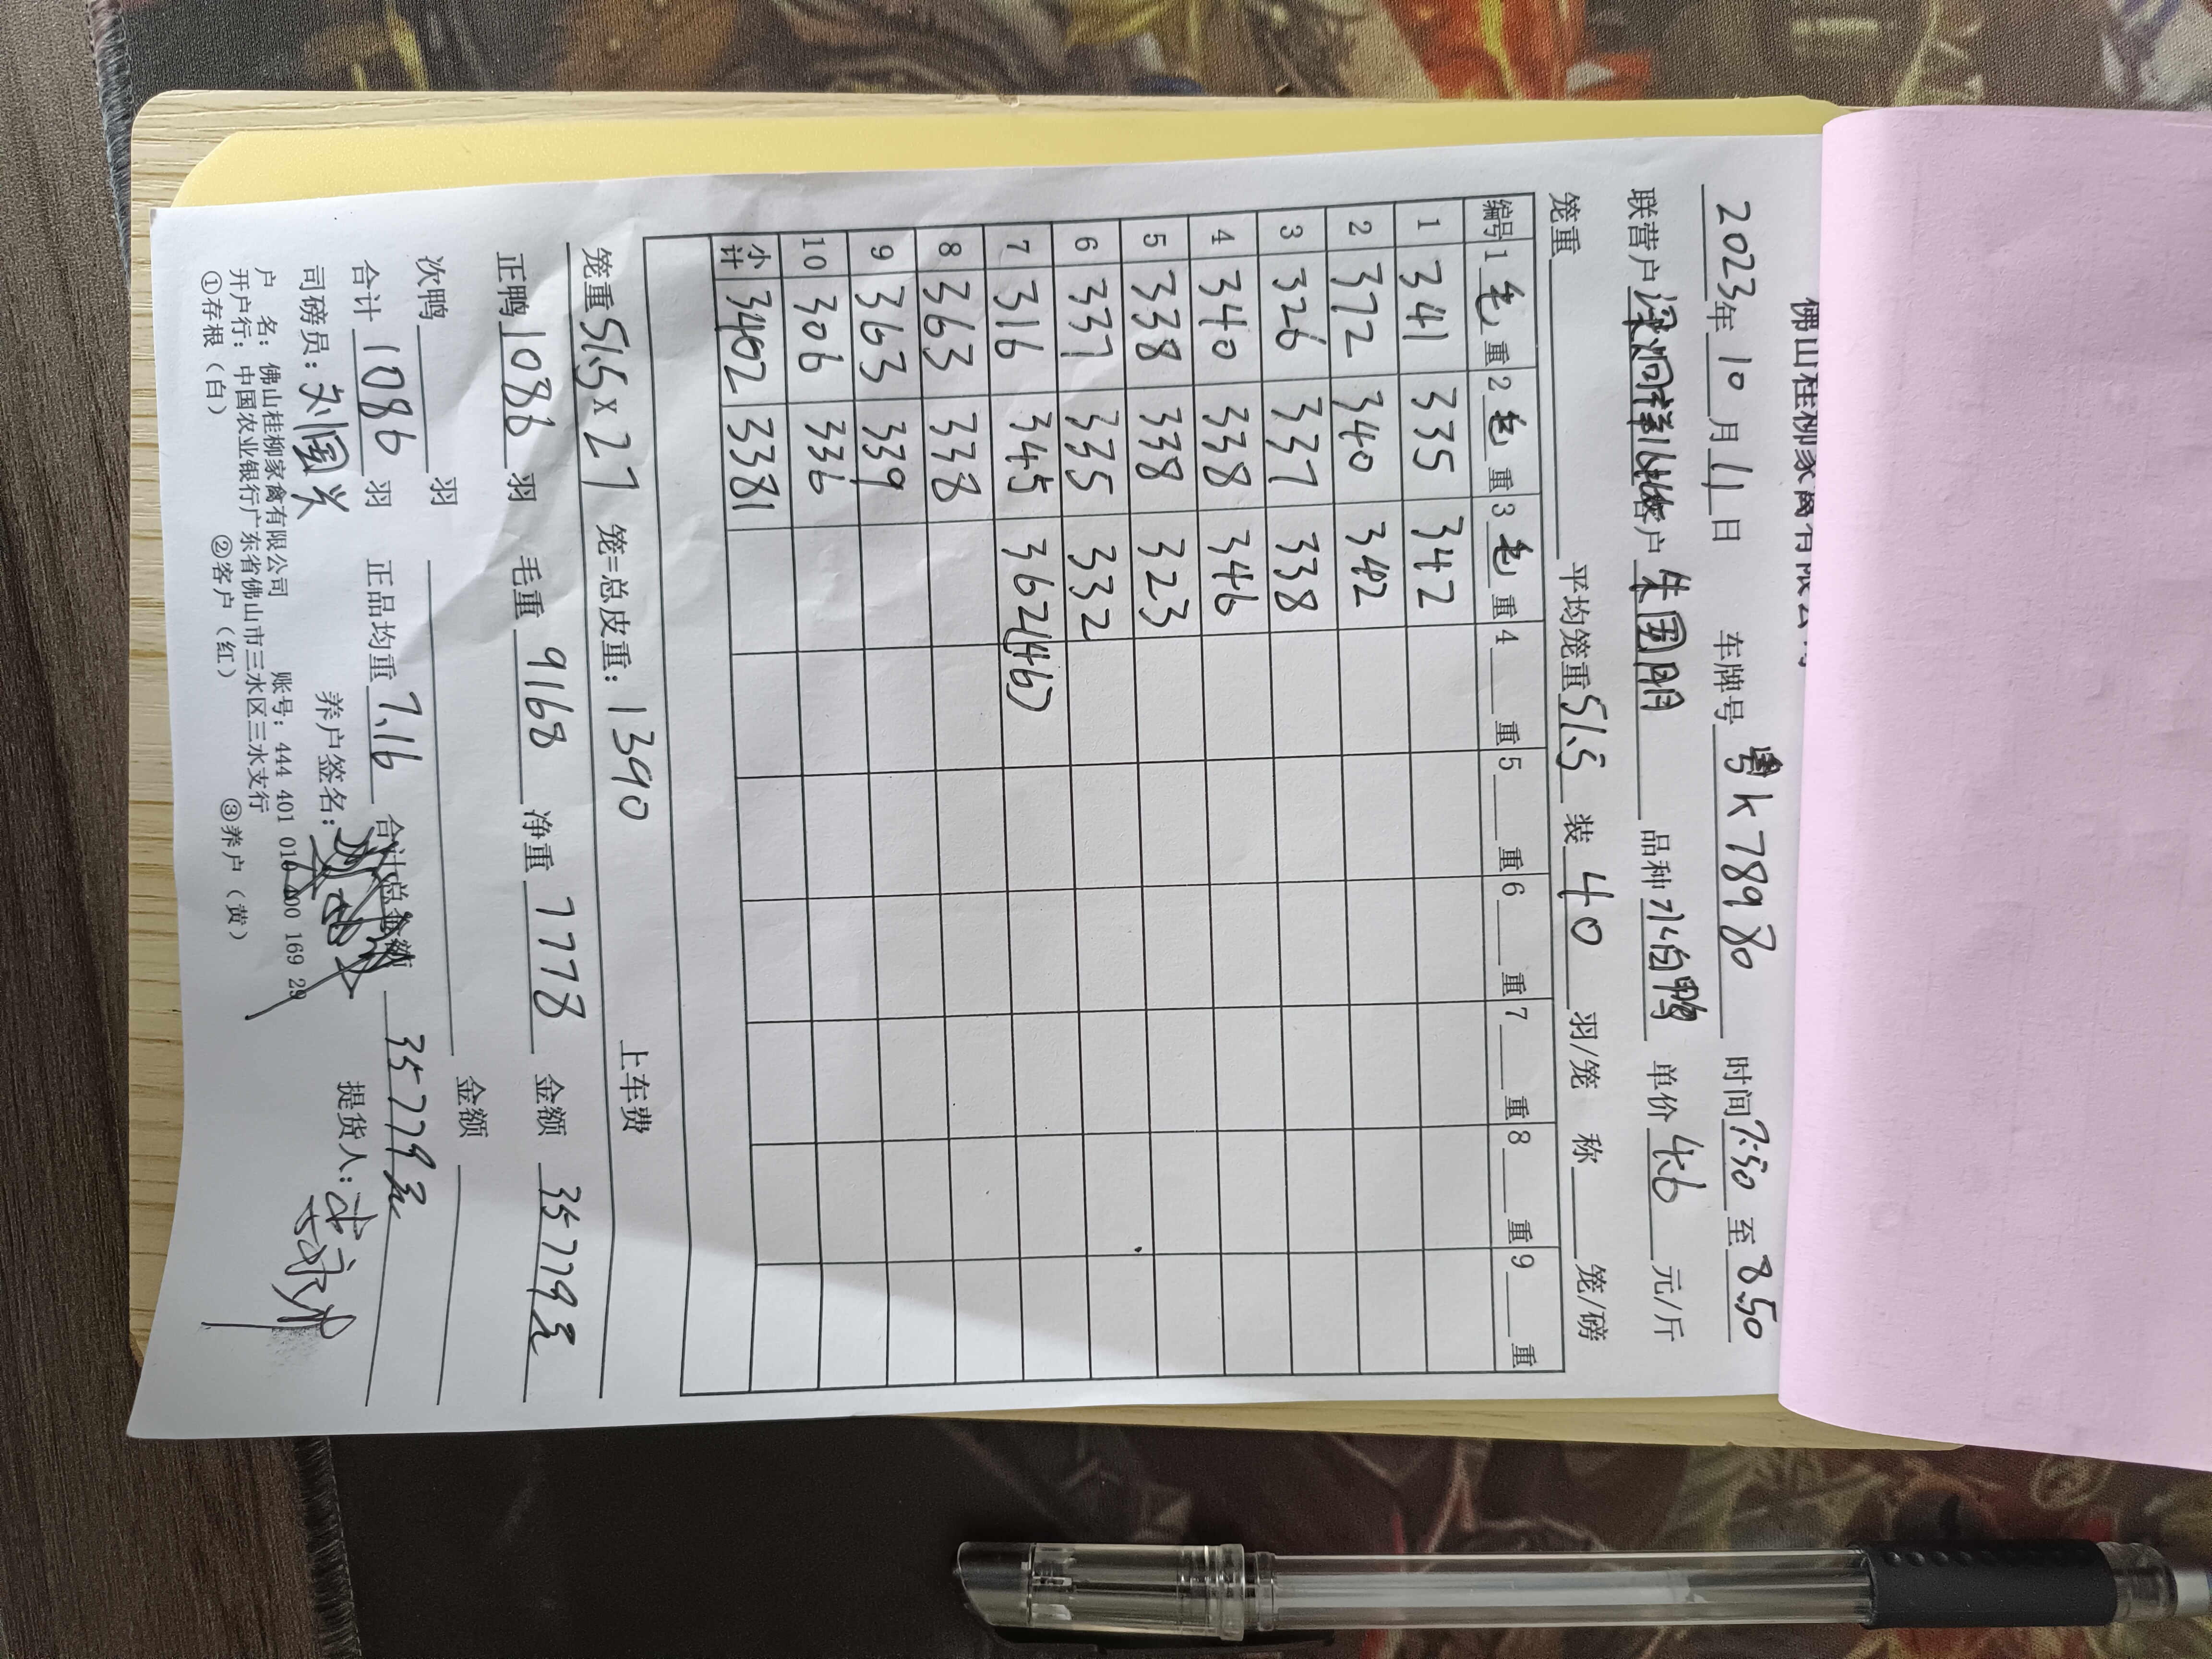 佛山桂柳家禽有限公司
2023年10月11日 车牌号 粤K78980 时间 7:50 至 8:50
联营户 梁炯祥 客户 朱国明 品种 水白鸭 单价 4.6 元/斤
笼重 平均笼重 51.5 装 40 羽/笼 称 笼/磅
编号 1 毛 重 2 毛 重 3 毛 重 4 重 5 重 6 重 7 重 8 重 9 重
1 341 335 342
2 372 340 342
3 326 337 338
4 340 338 346
5 338 338 323
6 337 335 332
7 316 345 362(46)
8 363 338
9 363 339
10 306 336
小计 3402 3381
笼重 51.5 x 27 笼=总皮重: 1390 上车费
正鸭 1086 羽 毛重 9168 净重 7778 金额 35779元
次鸭 羽 金额
合计 1086 羽 正品均重 7.16 合计总金额 35779元
司磅员: 刘国兴 养户签名: 提货人:
户 名: 佛山桂柳家禽有限公司 账号: 444 401 010 400 169 29
开户行: 中国农业银行广东省佛山市三水区三水支行
①存根(白) ②客户(红) ③养户(黄)